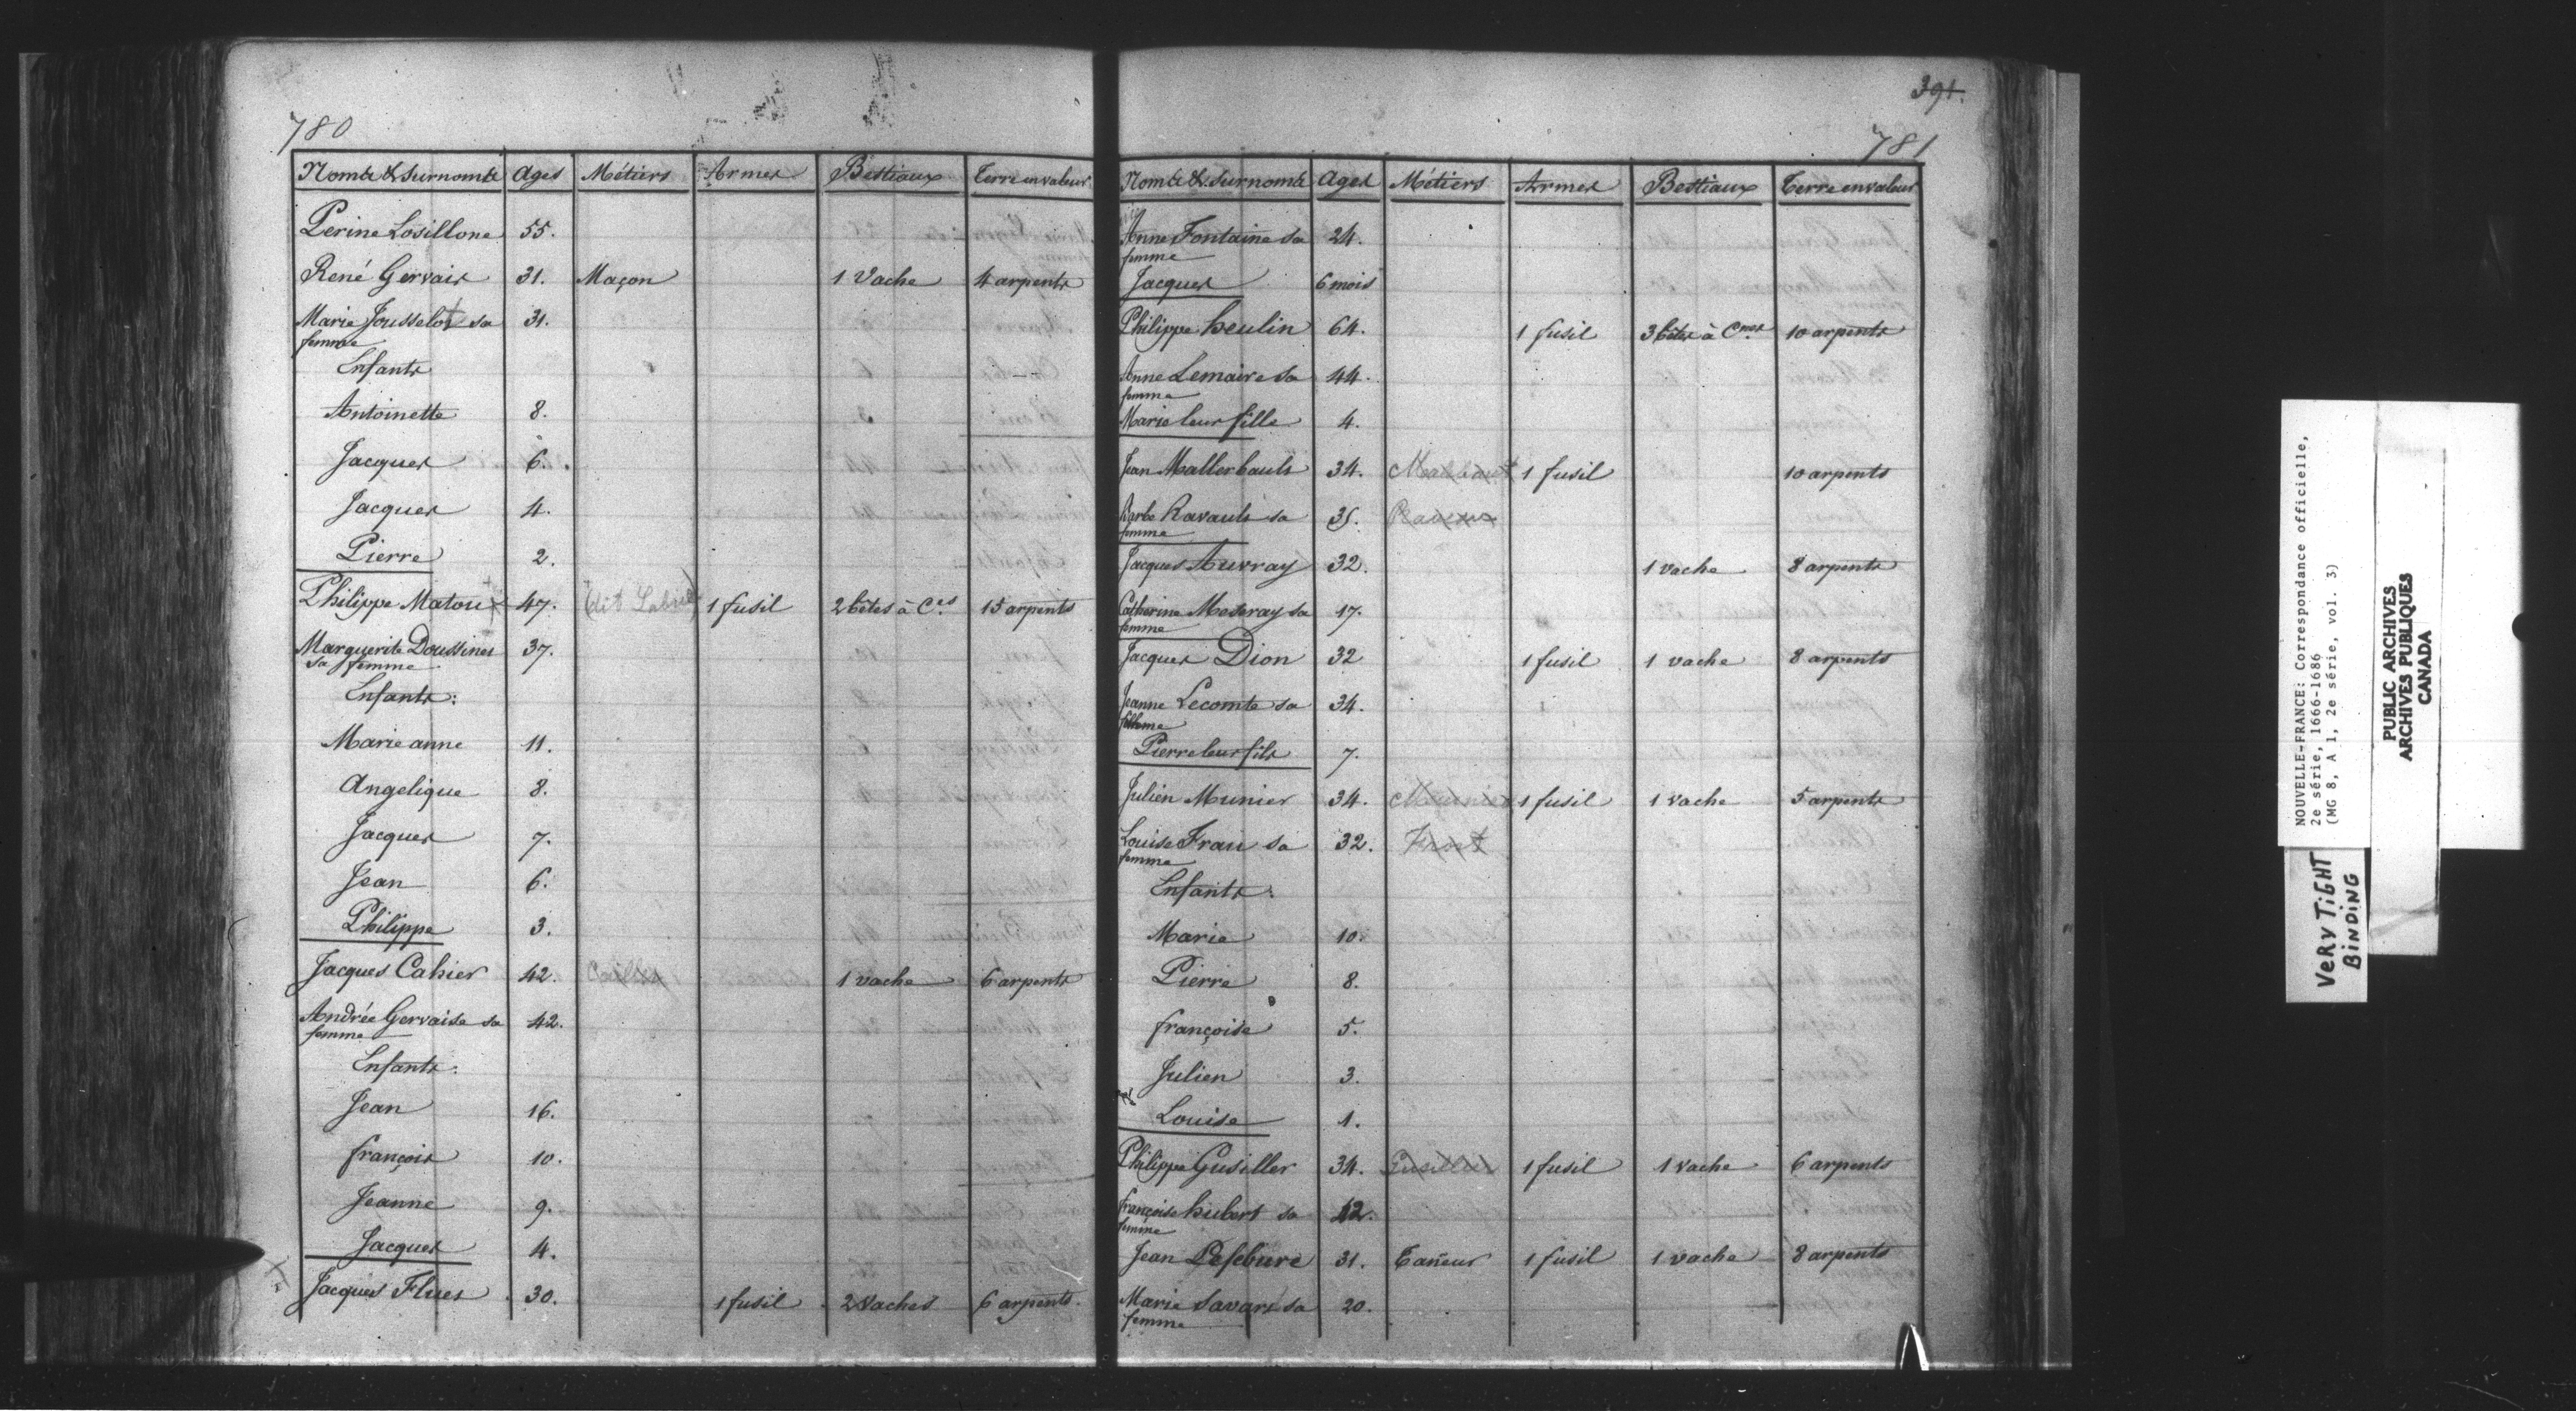 780
Noms & Surnoms Ages Métiers Armes Bestiaux Terre en valeur
Perine Losillone 55.
René Gervais 31. Maçon 1 Vache 4 arpents
Marie Jousselot sa 31.
femme
Enfants
Antoinette 8.
Jacques 6.
Jacques 4.
Pierre 2.
Philippe Matou 47. (dit Labrie) 1 fusil 2 bêtes à C.es 15 arpents
Marguerite Doussines 37.
sa femme
Enfants:
Marie anne 11.
Angelique 8.
Jacques 7.
Jean 6.
Philippe 3.
Jacques Cahier 42. 1 vache 6 arpents
Andrée Gervaise sa 42.
femme
Enfants:
Jean 16.
françois 10.
Jeanne 9.
Jacques 4.
Jacques Flues 30. 1 fusil 2 Vaches 6 arpents.
391.
781
Noms & Surnoms Ages Métiers Armes Bestiaux Terre en valeur
Anne Fontaine sa 24.
femme
Jacques 6 mois
Philippe heulin 64. 1 fusil 3 bêtes à C.nes 10 arpents
Anne Lemaire sa 44.
femme
Marie leur fille 4.
Jean Mallerbault 34. 1 fusil 10 arpents
Barbe Ravault sa 35.
femme
Jacques Auvray 32. 1 vache 8 arpents
Catherine Meseray sa 17.
femme
Jacques Dion 32 1 fusil 1 vache 8 arpents
Jeanne Lecomte sa 34.
femme
Pierre leur fils 7.
Julien Munier 34. 1 fusil 1 vache 5 arpents
Louise Frau sa 32. Frost
femme
Enfants:
Marie 10.
Pierre 8.
françoise 5.
Julien 3.
Louise 1.
Philippe Gusiller 34. Gusiller 1 fusil 1 vache 6 arpents
françoise hubert sa 42.
femme
Jean Lefebure 31. Tañeur 1 fusil 1 vache 8 arpents
Marie Savari sa 20.
femme
NOUVELLE-FRANCE: Correspondance officielle,
2e série, 1666-1686
(MG 8, A 1, 2e série, vol. 3)
VERY TIGHT
BINDING
PUBLIC ARCHIVES
ARCHIVES PUBLIQUES
CANADA